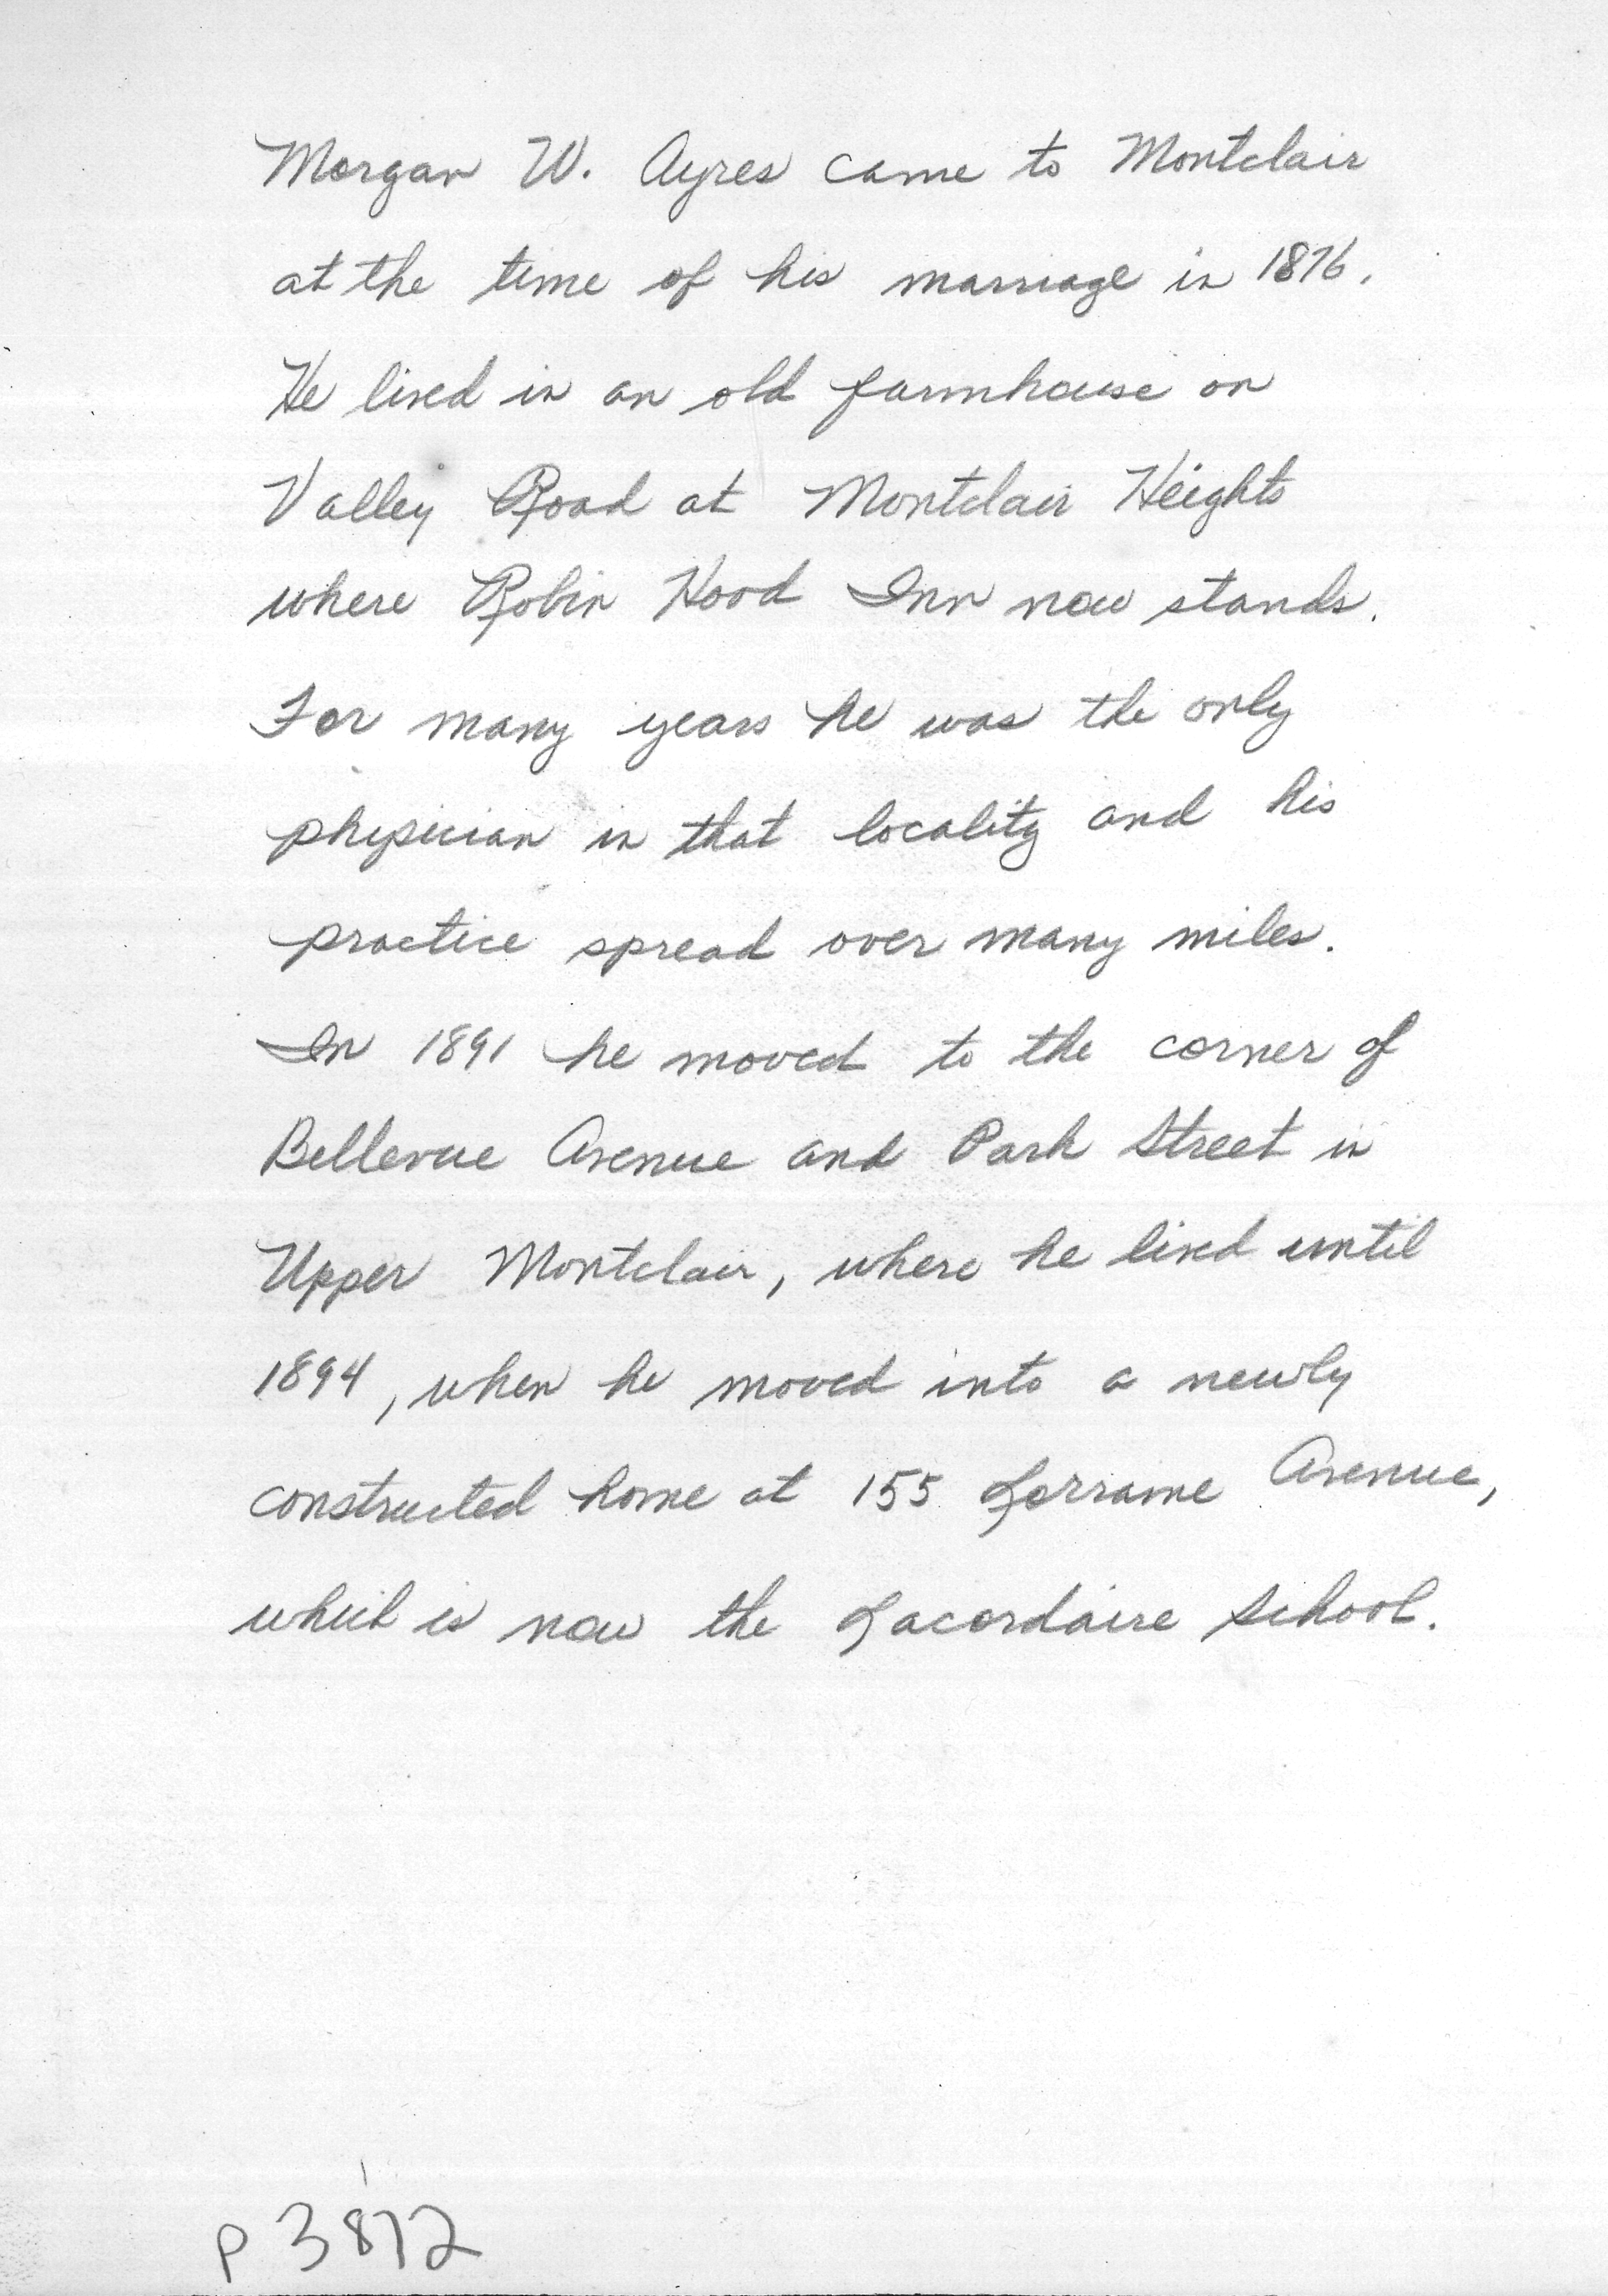 Morgan W. Ayres came to Montclair
at the time of his marriage in 1876.
He lived in an old farmhouse on
Valley Road at Montclair Heights
where Robin Hood Inn now stands.
For many years he was the only
physician in that locality and his
practice spread over many miles.
In 1891 he moved to the corner of
Bellevue Avenue and Park Street in
Upper Montclair, where he lived until
1894, when he moved into a newly
constructed home at 155 Lorraine Avenue,
which is now the Lacordaire School.
P 3872